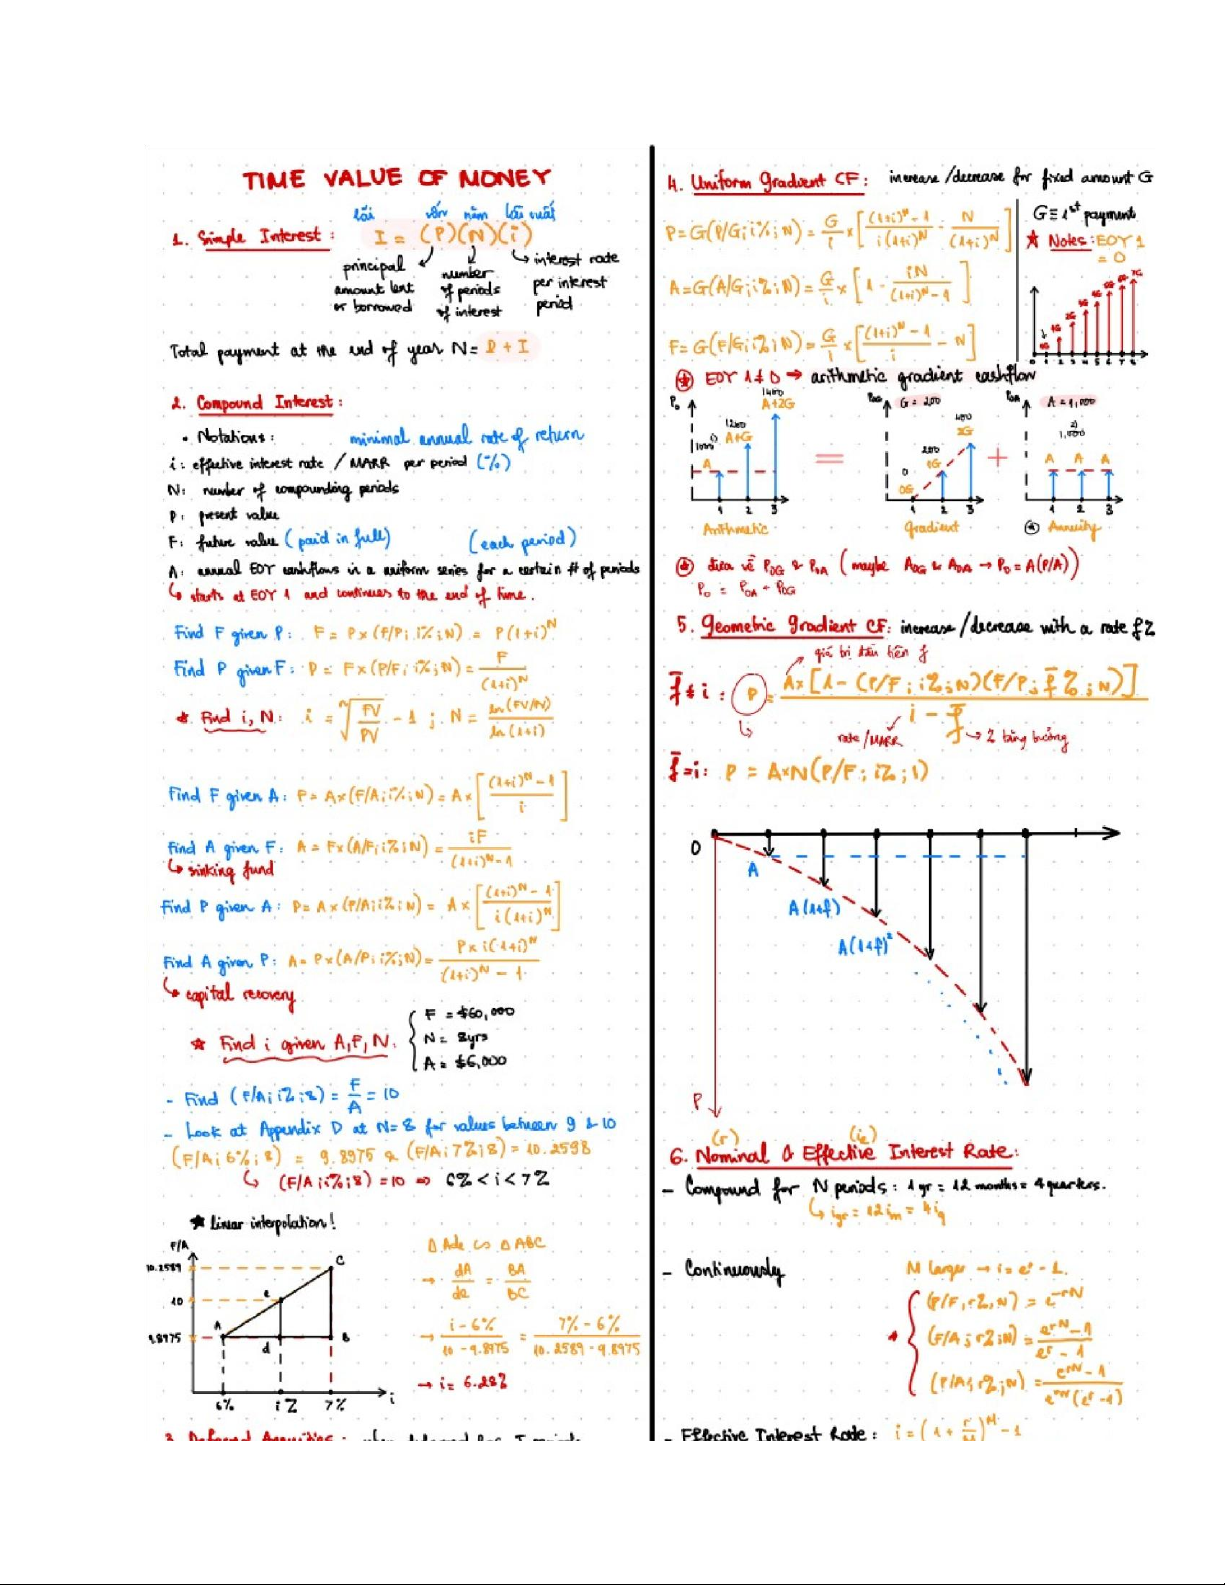 TIME VALUE OF MONEY
lãi vốn năm lãi suất
1. Simple Interest: I = (P)(N)(i)
principal amount lent or borrowed
number of periods of interest
interest rate per interest period
Total payment at the end of year N = P + I
2. Compound Interest:
• Notations: minimal annual rate of return
i: effective interest rate / MARR per period (%)
N: number of compounding periods
P: present value
F: future value (paid in full) (each period)
A: annual EOY cashflows in a uniform series for a certain # of periods
↳ starts at EOY 1 and continues to the end of time.
Find F given P: F = P×(F/P; i%; N) = P(1+i)^N
Find P given F: P = F×(P/F; i%; N) = F/(1+i)^N
★ Find i, N: i = ᴺ√(FV/PV) - 1 ; N = ln(FV/PV)/ln(1+i)
Find F given A: F = A×(F/A; i%; N) = A×[((1+i)^N - 1)/i]
Find A given F: A = F×(A/F; i%; N) = iF/((1+i)^N - 1)
↳ sinking fund
Find P given A: P = A×(P/A; i%; N) = A×[((1+i)^N - 1)/(i(1+i)^N)]
Find A given P: A = P×(A/P; i%; N) = P×i(1+i)^N/((1+i)^N - 1)
↳ capital recovery
★ Find i given A, F, N:
F = $60,000
N = 8yrs
A = $6,000
- Find (F/A; i%; 8) = F/A = 10
- Look at Appendix D at N=8 for values between 9 & 10
(F/A; 6%; 8) = 9.8975 & (F/A; 7%; 8) = 10.2598
↳ (F/A; i%; 8) = 10 ⇒ 6% < i < 7%
★ linear interpolation!
F/A
10.2589
10
9.8975
A e C
d B
6% i% 7% i
Δ Ade ∽ Δ ABC
→ dA/de = BA/BC
→ (i - 6%)/(10 - 9.8975) = (7% - 6%)/(10.2589 - 9.8975)
→ i = 6.28%
3. Deferred Annuities:
4. Uniform Gradient CF: increase/decrease for fixed amount G
P = G(P/G; i%; N) = G/i × [((1+i)^N - 1)/(i(1+i)^N) - N/(1+i)^N]
A = G(A/G; i%; N) = G/i × [1 - iN/((1+i)^N - 1)]
F = G(F/G; i%; N) = G/i × [((1+i)^N - 1)/i - N]
G ≡ 1st payment
★ Notes: EOY 1 = 0
0 1 2 3 4 5 6 7 8
EOY 1 ≠ 0 → arithmetic gradient cashflow
P₀ 1000 1200 1400
A A+G A+2G
1 2 3
Arithmetic
=
P0G G = 200
0 200 400
0G 1G 2G
1 2 3
gradient
+
P0A A = 1,000
1,000
A A A
1 2 3
Annuity
đưa về P0G & P0A (maybe A0G & A0A → P₀ = A(P/A))
P₀ = P0A + P0G
5. Geometric gradient CF: increase/decrease with a rate f%
giá trị đầu tiên f
f̄ ≠ i: P = A×[1 - (P/F; i%; N)(F/P; f̄%; N)]/(i - f̄)
rate/MARR % tăng trưởng
f̄ = i: P = A×N(P/F; i%; 1)
0
A
A(1+f)
A(1+f)²
P
(r) (ie)
6. Nominal & Effective Interest Rate:
- Compound for N periods: 1 yr = 12 months = 4 quarters.
↳ iyr = 12im = 4iq
- Continuously M larger → i = e^r - 1.
(P/F, r%, N) = e^-rN
(F/A; r%; N) = (e^rN - 1)/(e^r - 1)
(P/A; r%; N) = (e^rN - 1)/(e^rN(e^r - 1))
- Effective Interest Rate: i = (1 + r/M)^M - 1